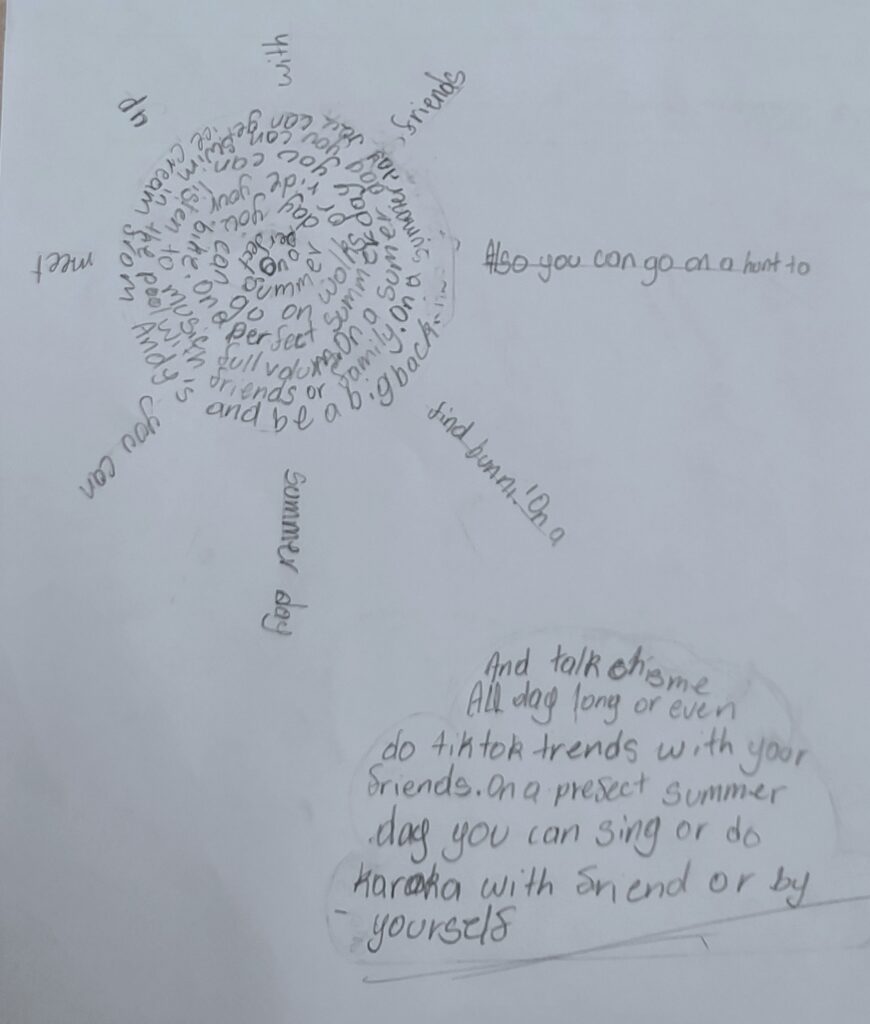 On a perfect summer day you can go on a walk or ride your bike. On a perfect summer day you can listen to music full volume. On a summer day you can swim in the pool with friends or family. On a summer day you can get ice cream from Andy's and be a big back.
Also you can go on a hunt to
find bunni. On a
summer day
you can
meet
up
with
friends
And talk chisme
All day long or even
do tiktok trends with your
friends. On a prefect summer
day you can sing or do
karaoka with friend or by
yourself